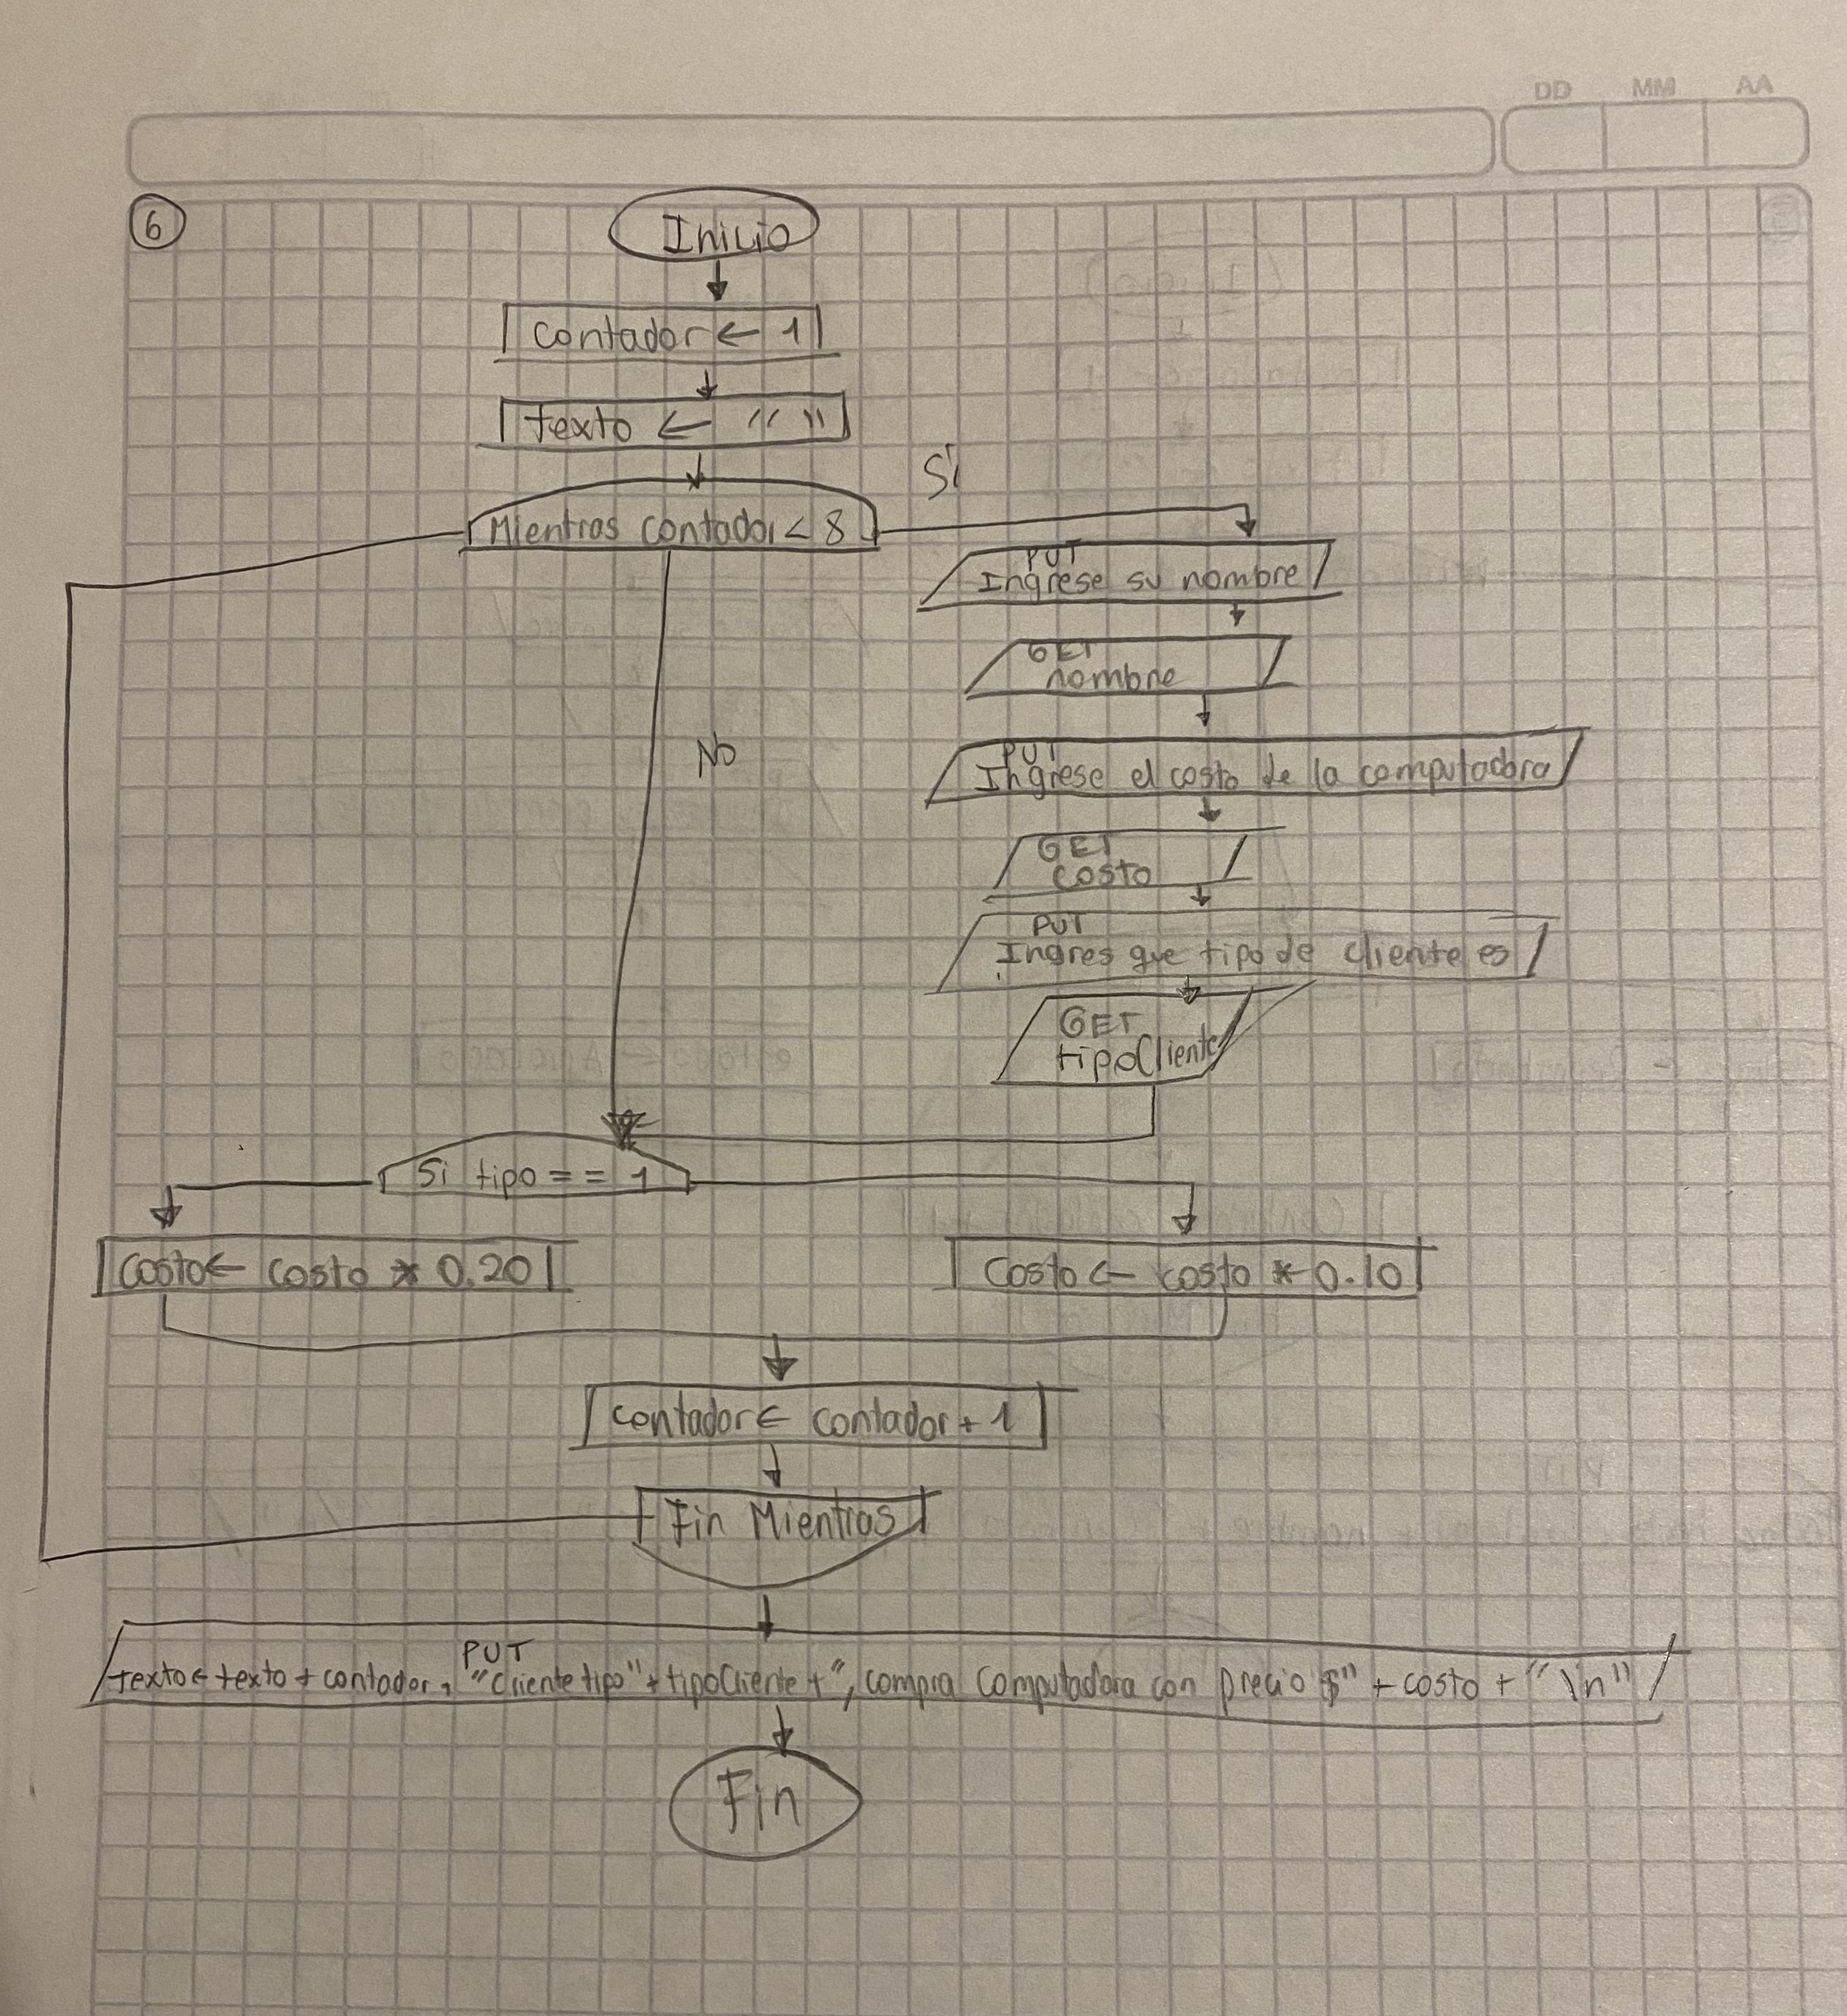 DD MM AA
6
Inicio
contador ← 1
texto ← " "
Sí
Mientras contador < 8
PUT
Ingrese su nombre
GET
nombre
No
PUT
Ingrese el costo de la computadora
GET
costo
PUT
Ingres que tipo de cliente es
GET
tipoCliente
Si tipo == 1
costo ← costo * 0.20
costo ← costo * 0.10
contador ← contador + 1
Fin Mientras
PUT
texto ← texto + contador, "Cliente tipo" + tipoCliente + ", compra computadora con precio $" + costo + "\n"
Fin